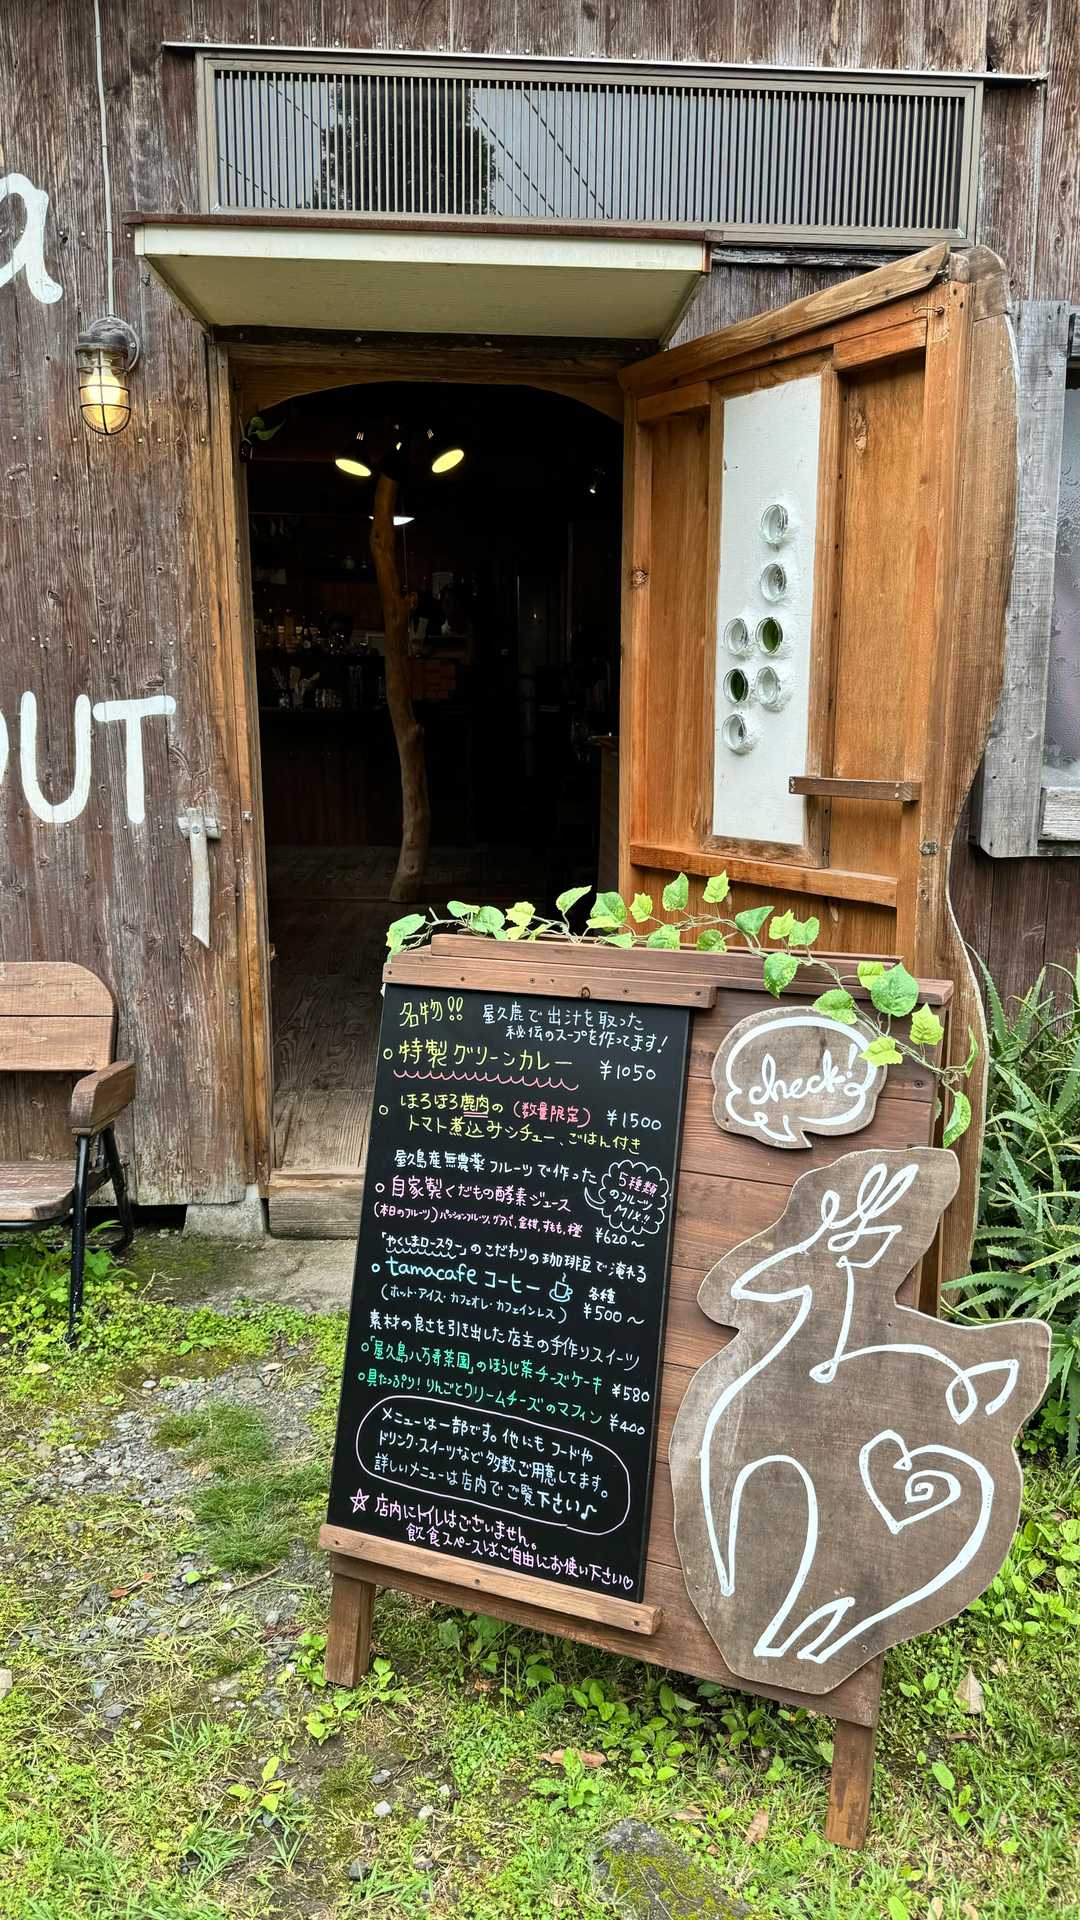 a
OUT
名物!! 屋久鹿で出汁を取った
秘伝のスープを作ってます!
○特製グリーンカレー ¥1050
○ほろほろ鹿肉の(数量限定) ¥1500
トマト煮込みシチュー、ごはん付き
屋久島産無農薬フルーツで作った
○自家製くだもの酵素ジュース
(本日のフルーツ)パッションフルーツ、グァバ、金柑、すもも、橙
5種類
のフルーツ
MIX!!
¥620〜
「やくしまロースター」のこだわりの珈琲豆で淹れる
○tamacafe コーヒー 各種
(ホット・アイス・カフェオレ・カフェインレス) ¥500〜
素材の良さを引き出した店主の手作りスイーツ
○「屋久島八万寿茶園」のほうじ茶チーズケーキ ¥580
○具たっぷり!りんごとクリームチーズのマフィン ¥400
メニューは一部です。他にもフードや
ドリンク・スイーツなど多数ご用意してます。
詳しいメニューは店内でご覧下さい♪
☆店内にトイレはございません。
飲食スペースはご自由にお使い下さい♡
check!